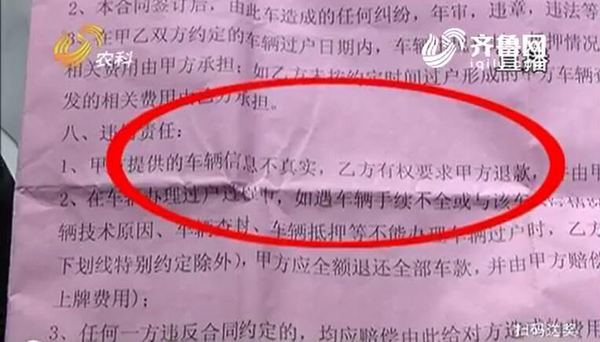 2、本合同签订后，由此车造成的任何纠纷，年审，违章，违法等
3、在甲乙双方约定的车辆过户日期内，车辆
押情况
相关费用由甲方承担；如乙方未按约定时间过户形成的
方车辆
发的相关费用由乙方承担。
八、违约责任：
1、甲方提供的车辆信息不真实，乙方有权要求甲方退款，并由甲
2、在车辆办理过户过程中，如遇车辆手续不全或与该车
辆技术原因、车辆查封、车辆抵押等不能办理车辆过户时，乙方
下划线特别约定除外），甲方应全额退还全部车款，并由甲方赔偿
上牌费用）；
3、任何一方违反合同约定的，均应赔偿由此给对方造成的费用
农科
齐鲁网
直播
扫码送奖